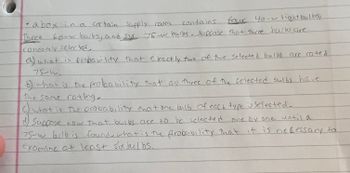 • a box in a certain supply room contains four 40-w lightbulbs,
Three 60-w bulbs, and six 75-w bulbs. suppose that three bulbs are
randomly selected.
a) what is probability that exactly two of the selected bulbs are rated
75-w.
b) what is the probability that all three of the selected bulbs have
the same rating.
c) what is the probability that one bulb of each type selected.
d) Suppose now that bulbs are to be selected one by one until a
75-w bulb is found. what is the probability that it is necessary to
examine at least six bulbs.